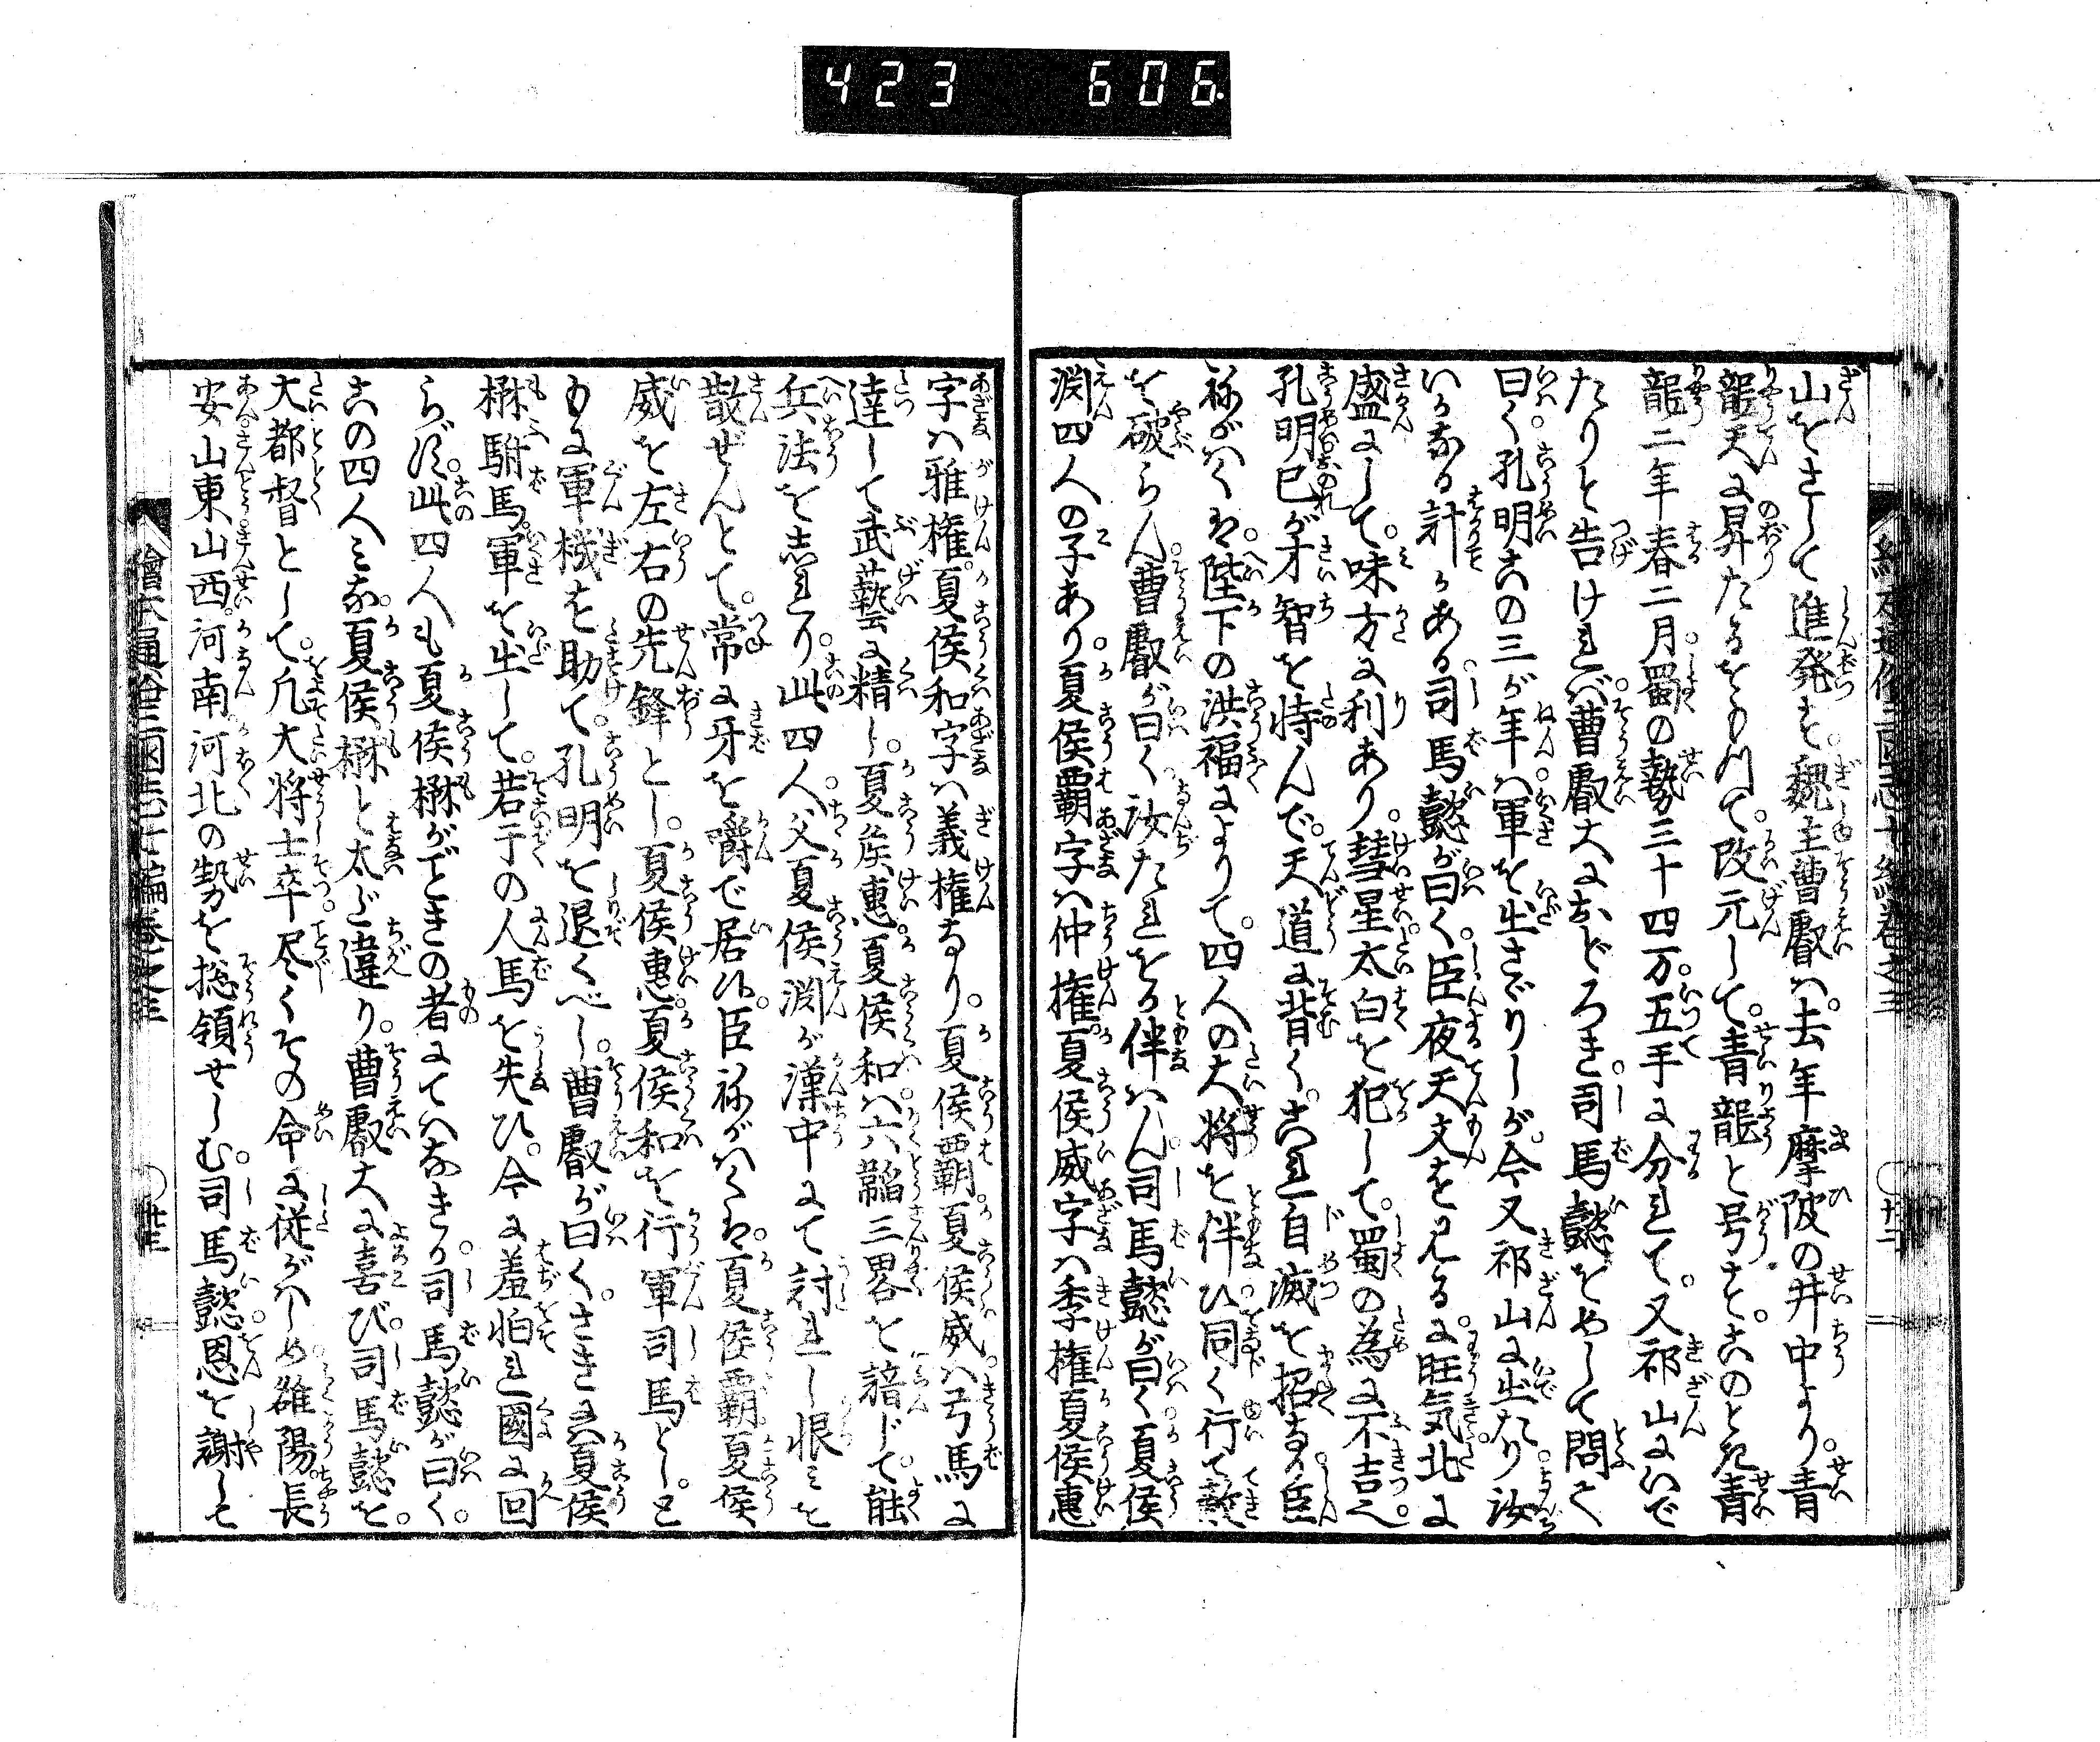 423 606
山をさして進発す。魏主曹叡ハ。去年摩陂の井中より。青
龍天に昇たるをもつて。改元して。青龍と号す。このとき青
龍二年春二月。蜀の勢三十四万。五手に分れて。又祁山にいで
たりと告けれバ。曹叡大におどろき。司馬懿をめして問て
曰く。孔明この三が年ハ。軍を出さゞりしが。今又祁山に出たり。汝
いかなる計かある。司馬懿が曰く。臣夜天文を見るに。旺気北に
盛にして。味方に利あり。彗星太白を犯して。蜀の為に不吉也。
孔明己が才智を恃んで。天道に背く。これ自滅を招なり。臣
ねがハくハ。陛下の洪福によりて。四人の大将を伴ひ。同く行て敵
を破らん。曹叡が曰く。汝たれをか伴ハん。司馬懿が曰く。夏侯
淵四人の子あり。夏侯覇字ハ仲権。夏侯威字ハ季権。夏侯惠
字ハ雅権。夏侯和字ハ義権なり。夏侯覇。夏侯威ハ。弓馬に
達して武藝に精し。夏侯惠。夏侯和ハ。六韜三畧を諳じて。能
兵法を志れり。此四人。父夏侯淵が漢中にて討れし恨ミを
散ぜんとて。常に牙を嚼で居候。臣ねがハくハ。夏侯覇。夏侯
威を左右の先鋒とし。夏侯惠。夏侯和を。行軍司馬とし。と
もに軍機を助て。孔明を退くべし。曹叡が曰く。さきにハ夏侯
楙駙馬。軍を出して。若干の人馬を失ひ。今に羞怕れ國に回
らず。此四人も夏侯楙がごときの者にてハなきか。司馬懿が曰く。
この四人ミな。夏侯楙と太ど違り。曹叡大に喜び。司馬懿を。
大都督として。凡大将士卒尽くその命に従がハしめ。雒陽。長
安。山東。山西。河南。河北の勢を。総領せしむ。司馬懿。恩を謝して
繪本通俗三國志七編巻之三